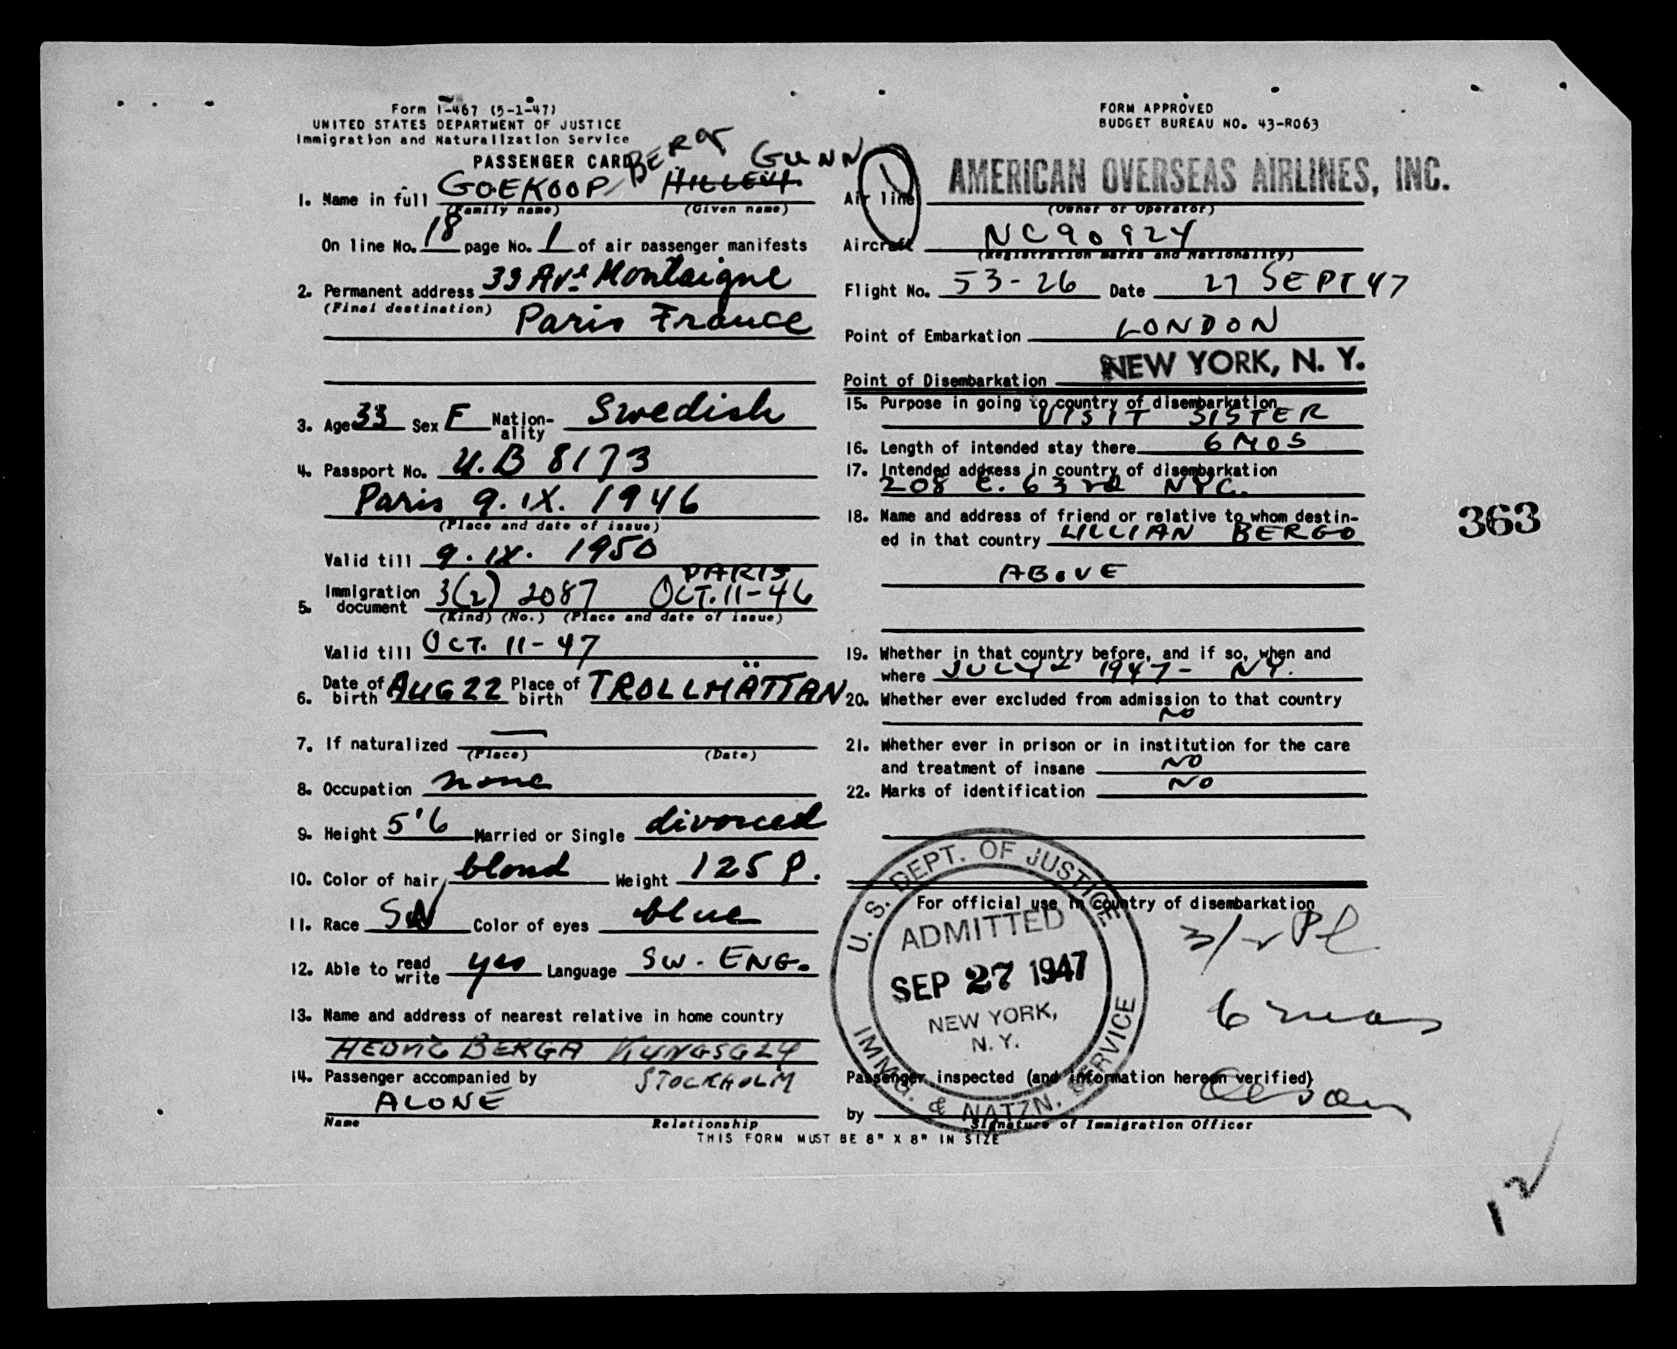 Form I-467 (5-1-47)
UNITED STATES DEPARTMENT OF JUSTICE
Immigration and Naturalization Service
PASSENGER CARD
FORM APPROVED
BUDGET BUREAU NO. 43-R063
1. Name in full GOEKOOP/ BERG HILLEVI GUNN
(Family name) (Given name)
On line No. 18 page No. 1 of air passenger manifests
2. Permanent address 33 Ave Montaigne
(Final destination) Paris France
3. Age 33 Sex F Nation-ality Swedish
4. Passport No. U.B 8173
Paris 9. IX. 1946
(Place and date of issue)
Valid till 9. IX. 1950
5. Immigration document 3(2) 2087 PARIS OCT. 11-46
(Kind) (No.) (Place and date of issue)
Valid till OCT. 11-47
6. Date of birth AUG 22 Place of birth TROLLHÄTTAN
7. If naturalized —
(Place) (Date)
8. Occupation none
9. Height 5'6 Married or Single divorced
10. Color of hair blond Weight 125 P.
11. Race SW Color of eyes blue
12. Able to read write yes Language SW. ENG.
13. Name and address of nearest relative in home country
HEDVIG BERGA
STOCKHOLM
14. Passenger accompanied by
ALONE
Name Relationship
1
Air line AMERICAN OVERSEAS AIRLINES, INC.
(Owner or Operator)
Aircraft NC90924
(Registration marks and Nationality)
Flight No. 53-26 Date 27 SEPT 47
Point of Embarkation LONDON
Point of Disembarkation NEW YORK, N. Y.
15. Purpose in going to country of disembarkation
VISIT SISTER
16. Length of intended stay there 6 MOS
17. Intended address in country of disembarkation
208 E. 63rd NYC.
18. Name and address of friend or relative to whom destin-
ed in that country LILLIAN BERGO
ABOVE
363
19. Whether in that country before, and if so, when and
where JULY 1947- NY.
20. Whether ever excluded from admission to that country
NO
21. Whether ever in prison or in institution for the care
and treatment of insane NO
22. Marks of identification NO
For official use in country of disembarkation
U. S. DEPT. OF JUSTICE
ADMITTED
SEP 27 1947
NEW YORK,
N. Y.
IMMG. & NATZN. SERVICE
3/2 Pl
6 mos
Passenger inspected (and information hereon verified)
by Olson
Signature of Immigration Officer
THIS FORM MUST BE 8" X 8" IN SIZE
12